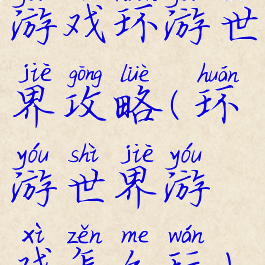 游戏环游世
jiè gōng lüè huán
界攻略(环
yóu shì jiè yóu
游世界游
xì zěn me wán
戏怎么玩)